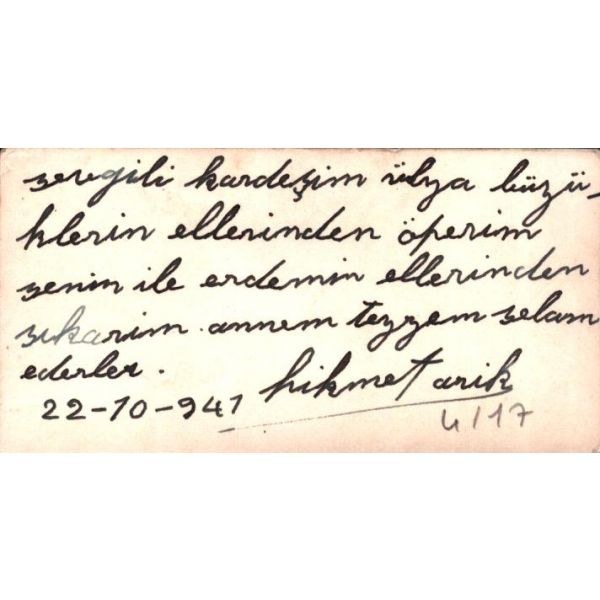 sevgili kardeşim ülya büzü-
klerin ellerinden öperim
senin ile erdemin ellerinden
sıkarim. annem teyzem selam
ederler.
hikmet arik
22-10-941
4117